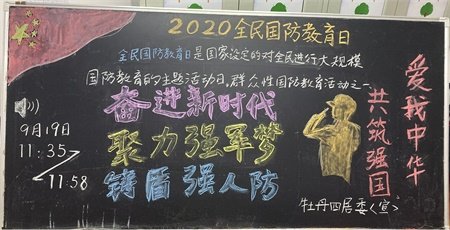 2020全民国防教育日
全民国防教育日是国家设定的对全民进行大规模
国防教育的主题活动日，群众性国防教育活动之一。
奋进新时代
聚力强军梦
铸盾强人防
9月19日
11:35
11:58
爱我中华
共筑强国
牡丹四居委<宣>